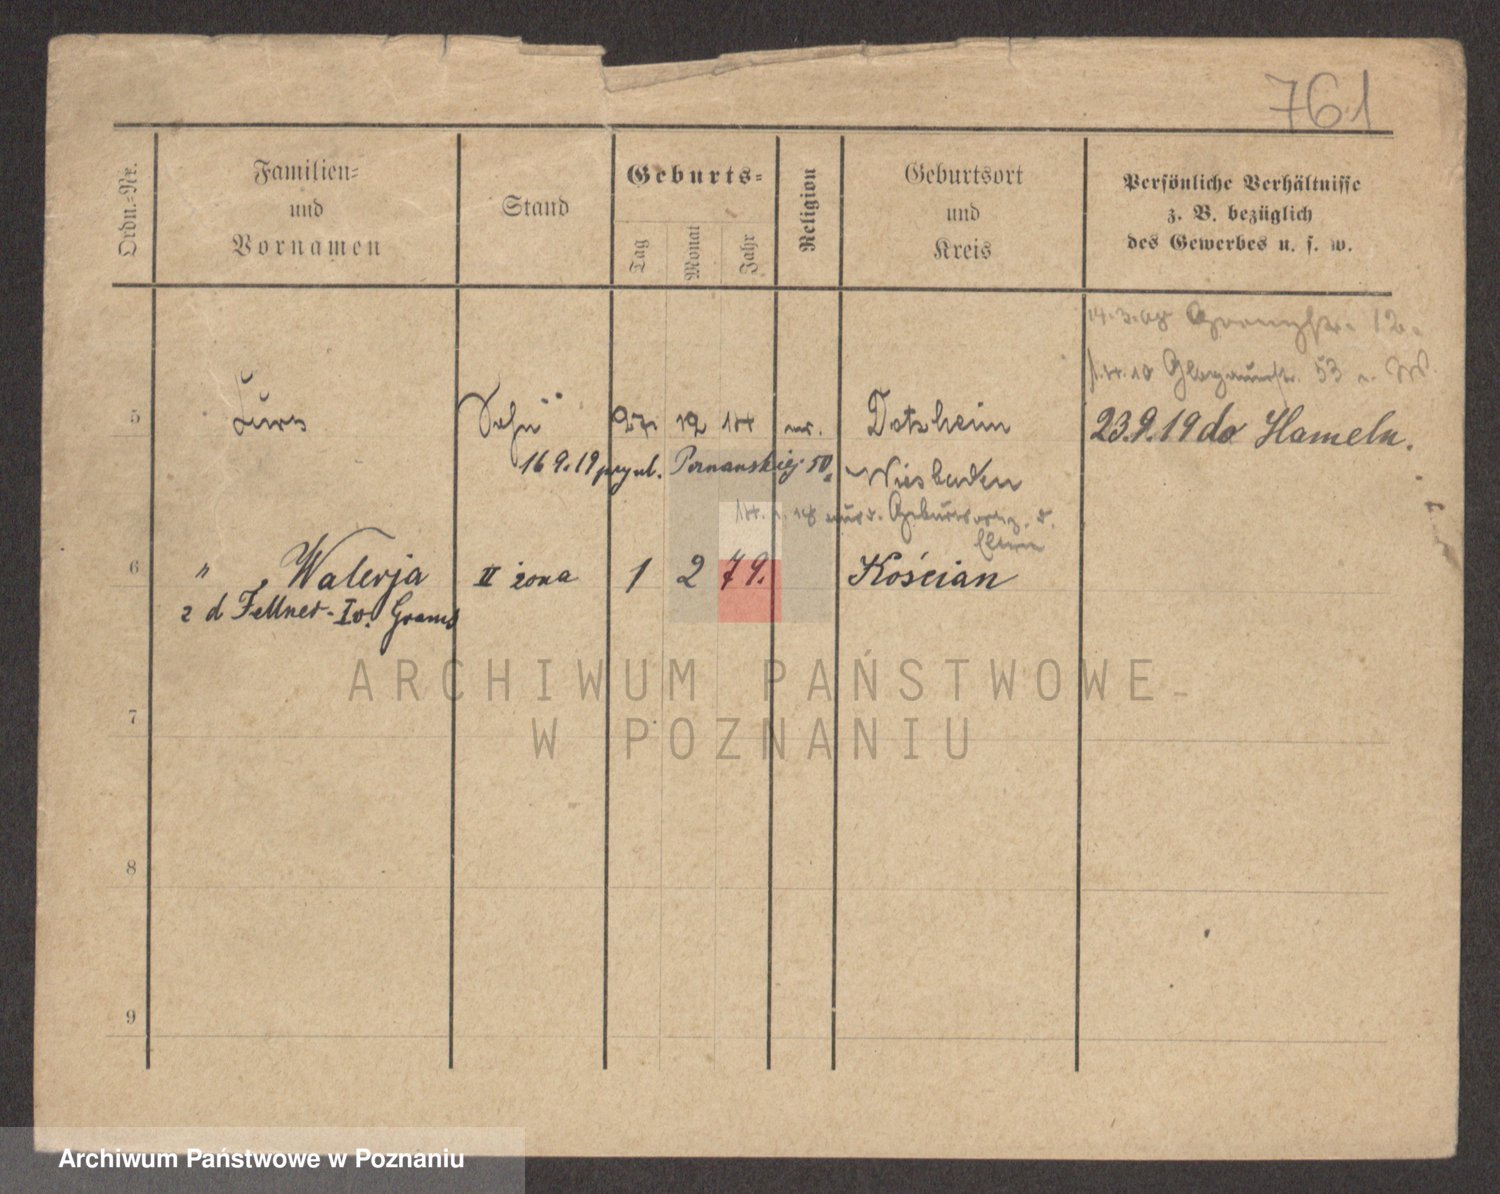 761
Ordn.-Nr.
Familien-
und
Vornamen
Stand
Geburts-
Tag
Monat
Jahr
Religion
Geburtsort
und
Kreis
Persönliche Verhältnisse
z. B. bezüglich
des Gewerbes u. s. w.
12.
Glogauerstr. 53
5
Sohn
12
Dotzheim
23.9.19 do Hameln.
16 9.19 przyul. Poznańskiej 50
Wiesbaden
Eltern
6
" Walerja
II żona
1
2
79.
Kościan
z d Fellner - Iv. Grams
7
8
9
ARCHIWUM PAŃSTWOWE
W POZNANIU
Archiwum Państwowe w Poznaniu